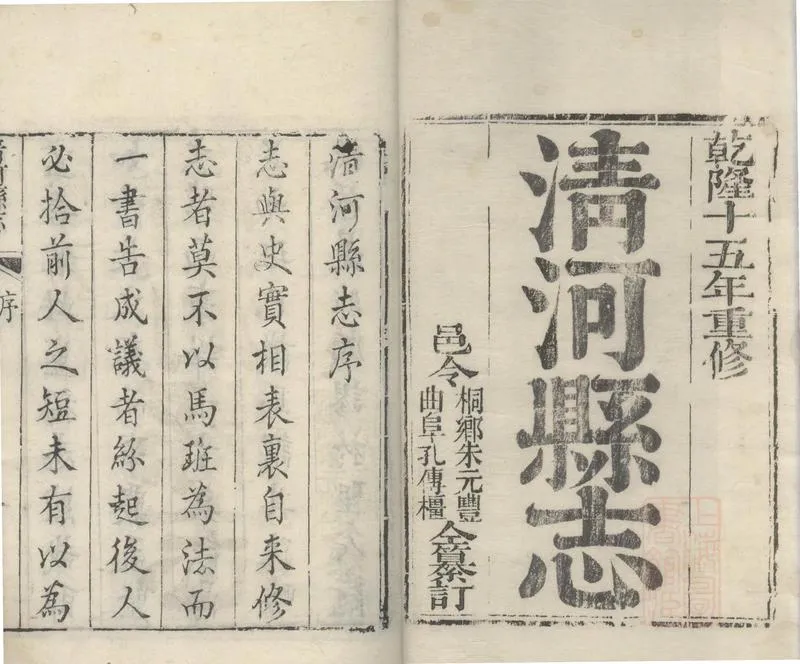 乾隆十五年重修
清河縣志
邑令
桐鄉朱元豐
曲阜孔傳橿
纂訂
清河縣志序
志與史實相表裏自来修
志者莫不以馬班為法而
一書告成議者紛起後人
必拾前人之短未有以為
序